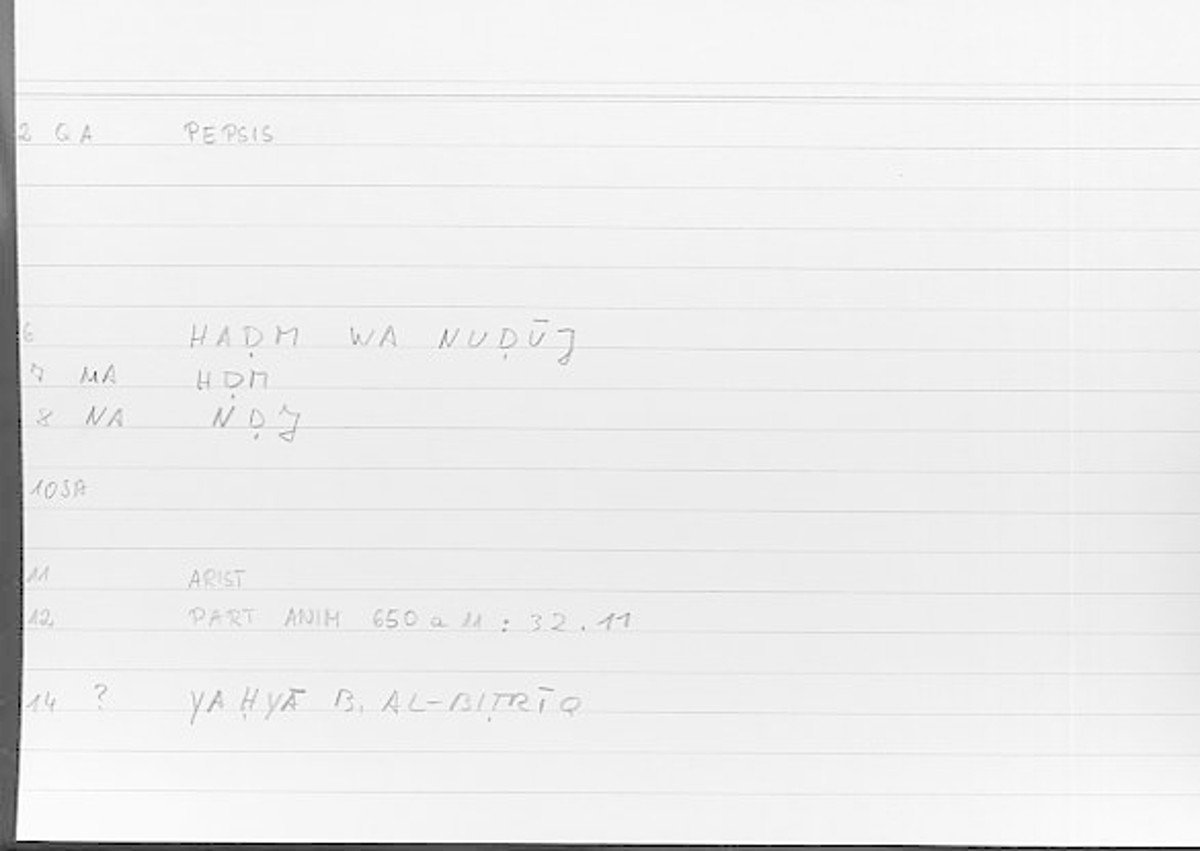 2 GA PEPSIS
6 HAḌM WA NUḌŪJ
7 MA HḌM
8 NA NḌJ
10 SA
11 ARIST
12 PART ANIM 650 a 11 : 32.11
14 ? YAḤYĀ B. AL-BIṬRĪQ